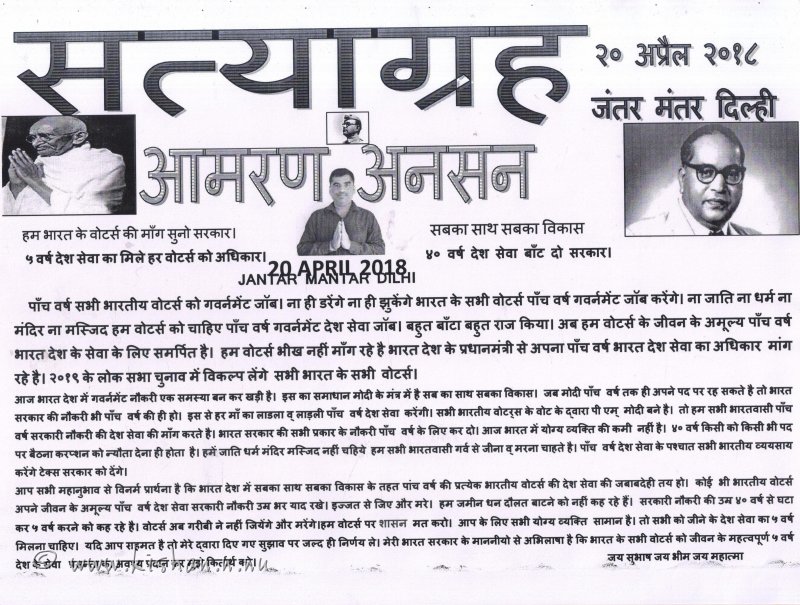 सत्याग्रह
२० अप्रैल २०१८
जंतर मंतर दिल्ही
आमरण अनसन
हम भारत के वोटर्स की माँग सुनो सरकार।
५ वर्ष देश सेवा का मिले हर वोटर्स को अधिकार।
सबका साथ सबका विकास
४० वर्ष देश सेवा बाँट दो सरकार।
20 APRIL 2018
JANTAR MANTAR DILHI
पाँच वर्ष सभी भारतीय वोटर्स को गवर्नमेंट जॉब। ना ही डरेंगे ना ही झुकेंगे भारत के सभी वोटर्स पाँच वर्ष गवर्नमेंट जॉब करेंगे। ना जाति ना धर्म ना
मंदिर ना मस्जिद हम वोटर्स को चाहिए पाँच वर्ष गवर्नमेंट देश सेवा जॉब। बहुत बाँटा बहुत राज किया। अब हम वोटर्स के जीवन के अमूल्य पाँच वर्ष
भारत देश के सेवा के लिए समर्पित है। हम वोटर्स भीख नहीं माँग रहे है भारत देश के प्रधानमंत्री से अपना पाँच वर्ष भारत देश सेवा का अधिकार मांग
रहे है। २०१९ के लोक सभा चुनाव में विकल्प लेंगे सभी भारत के सभी वोटर्स।
आज भारत देश में गवर्नमेंट नौकरी एक समस्या बन कर खड़ी है। इस का समाधान मोदी के मंत्र में है सब का साथ सबका विकास। जब मोदी पाँच वर्ष तक ही अपने पद पर रह सकते है तो भारत
सरकार की नौकरी भी पाँच वर्ष की ही हो। इस से हर माँ का लाडला व् लाड़ली पाँच वर्ष देश सेवा करेंगी। सभी भारतीय वोटर्स के वोट के द्वारा पी एम् मोदी बने है। तो हम सभी भारतवासी पाँच
वर्ष सरकारी नौकरी की देश सेवा की माँग करते है। भारत सरकार की सभी प्रकार के नौकरी पाँच वर्ष के लिए कर दो। आज भारत में योग्य व्यक्ति की कमी नहीं है। ४० वर्ष किसी को किसी भी पद
पर बैठना करप्शन को न्यौता देना ही होता है। हमें जाति धर्म मंदिर मस्जिद नहीं चहिये हम सभी भारतवासी गर्व से जीना व् मरना चाहते है। पाँच वर्ष देश सेवा के पश्चात सभी भारतीय व्ययसाय
करेंगे टेक्स सरकार को देंगे।
आप सभी महानुभाव से विनर्म प्रार्थना है कि भारत देश में सबका साथ सबका विकास के तहत पांच वर्ष की प्रत्येक भारतीय वोटर्स की देश सेवा की जबाबदेही तय हो। कोई भी भारतीय वोटर्स
अपने जीवन के अमूल्य पाँच वर्ष देश सेवा सरकारी नौकरी उम्र भर याद रखे। इज्जत से जिए और मरे। हम जमीन धन दौलत बाटने को नहीं कह रहे हैं। सरकारी नौकरी की उम्र ४० वर्ष से घटा
कर ५ वर्ष करने को कह रहे है। वोटर्स अब गरीबी ने नहीं जियेंगे और मरेंगे।हम वोटर्स पर शासन मत करो। आप के लिए सभी योग्य व्यक्ति सामान है। तो सभी को जीने के देश सेवा का ५ वर्ष
मिलना चाहिए। यदि आप सहमत है तो मेरे द्वारा दिए गए सुझाव पर जल्द ही निर्णय ले। मेरी भारत सरकार के माननीयो से अभिलाषा है कि भारत के सभी वोटर्स को जीवन के महत्वपूर्ण ५ वर्ष
देश के सेवा अवश्य प्रदान कर मुझे किर्तार्थ करे।
जय सुभाष जय भीम जय महात्मा